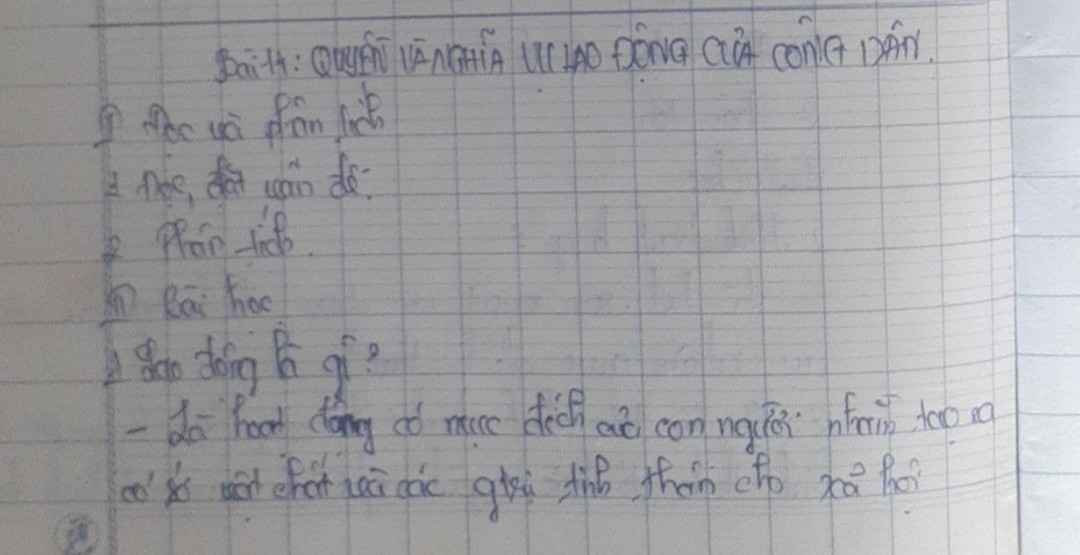 Bài 14: QUYỀN VÀ NGHĨA VỤ LAO ĐỘNG CỦA CÔNG DÂN.
I Đọc và phân tích
1 Đọc, đặt vấn đề.
2 Phân tích.
II Bài học
1 Lao động là gì?
- Là hoạt động có mục đích của con người nhằm tạo ra
cơ sở vật chất và các giá tinh thần cho xã hội